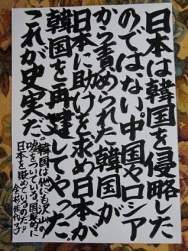 日本は韓国を侵略した
のではない中国やロシア
から責められた韓国が
日本に助けを求め日本が
韓国を再建してやった
これが史実だ
韓国は他にも沢山の
嘘をついている。国際的に
日本を貶めているのだ。